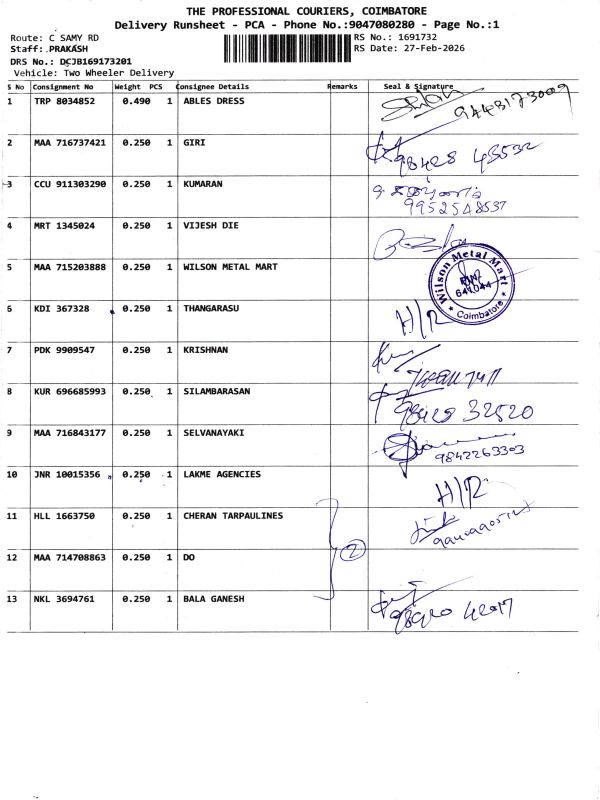 THE PROFESSIONAL COURIERS, COIMBATORE
Delivery Runsheet - PCA - Phone No.:9047080280 - Page No.:1
Route: C SAMY RD
RS No.: 1691732
Staff: PRAKASH
RS Date: 27-Feb-2026
DRS No.: DCJB169173201
Vehicle: Two Wheeler Delivery
S No Consignment No Weight PCS Consignee Details Remarks Seal & Signature
1 TRP 8034852 0.490 1 ABLES DRESS 9443173009
2 MAA 716737421 0.250 1 GIRI 98428 48532
3 CCU 911303290 0.250 1 KUMARAN
9952548537
4 MRT 1345024 0.250 1 VIJESH DIE
5 MAA 715203888 0.250 1 WILSON METAL MART Wilson Metal Mart
641044
Coimbatore
6 KDI 367328 0.250 1 THANGARASU H/R
7 PDK 9909547 0.250 1 KRISHNAN
8 KUR 696685993 0.250 1 SILAMBARASAN 98423 32520
9 MAA 716843177 0.250 1 SELVANAYAKI
9842263303
10 JNR 10015356 0.250 1 LAKME AGENCIES H/R
11 HLL 1663750 0.250 1 CHERAN TARPAULINES
2
12 MAA 714708863 0.250 1 DO
13 NKL 3694761 0.250 1 BALA GANESH